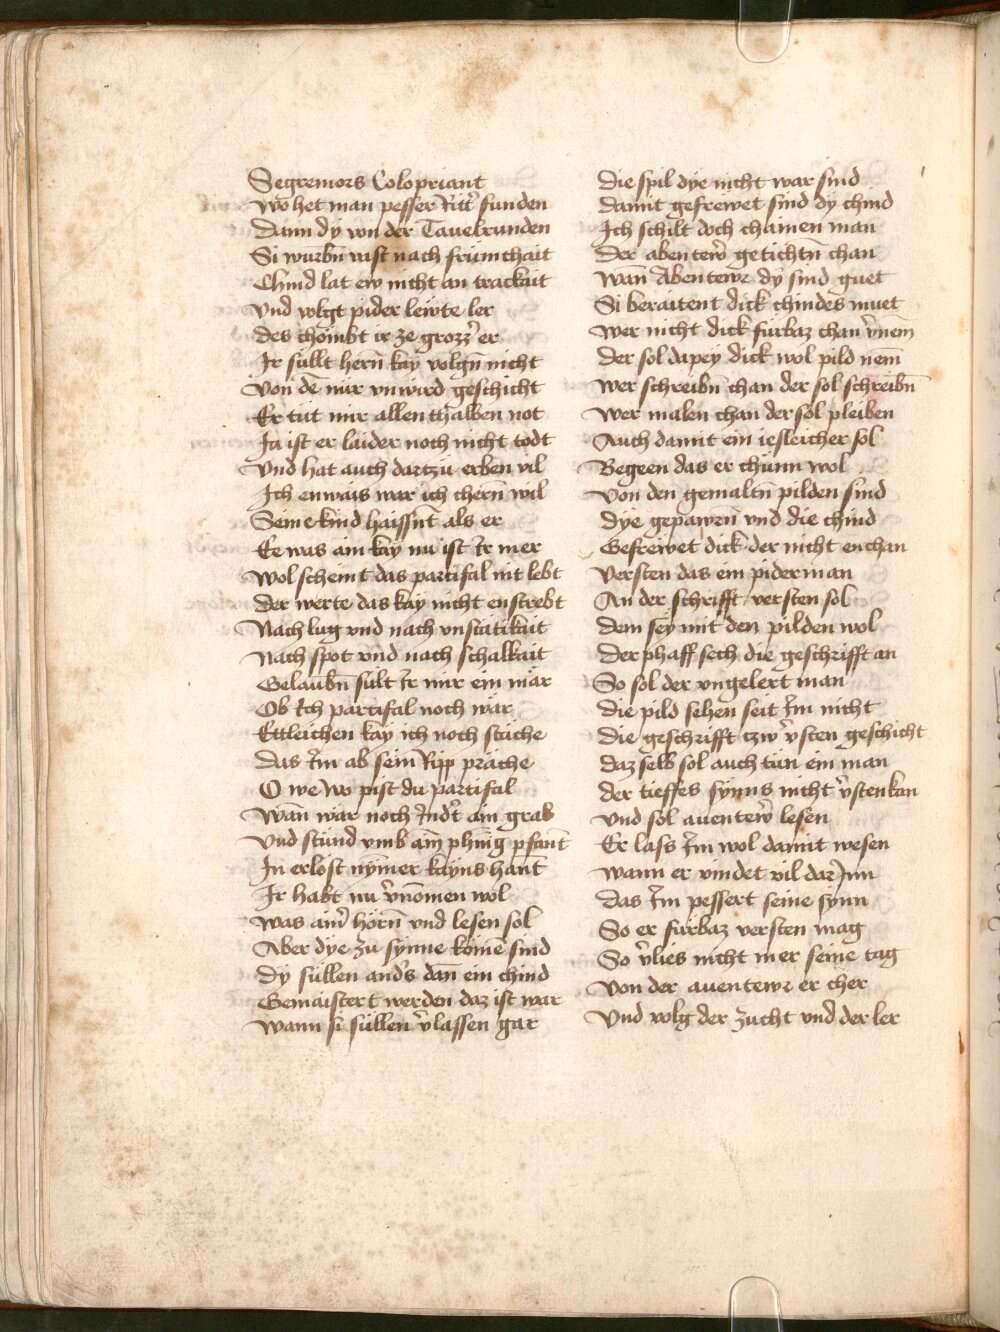 Segremors Colopriant
Wo het man pesser Ritt̾ funden
Dann dy von der Tauelrunden
Si wurbn̄ vast nach frümchait
Chind lat ew nicht an trackait
Vnd volgt pider lewte ler
des chömbt ir ze grozz̾ er
Ir süllt hern̄ kay volgn̄ nicht
Von de mir vnwird geschicht
Er tut mir allenthalben not
Ja ist er laider noch nicht todt
Vnd hat auch dartzu erben vil
Ich enwais war ich chern̄ wil
Seine kind haissn̄t als er
Ee was ain kay nu ist Ir mer
Wol scheint das partifal nit lebt
der werte das kay nicht enstrebt
Nach lug vnd nach vnstatikait
Nach spot vnd nach schalkait
Gelaubn̄ sült Ir mir ein mär
Ob Ich partifal noch wär
Ettleichen kay ich noch stäche
Das Im ab sein̄ Ripp präche
O we wo pist du partifal
Wan̄ wär noch Indt̾ ain grab
Vnd stünd vmb aim̄ phing pfant
In erlost nymer kayns hant
Ir habt nu v̾nomen wol
Was aim̾ hörn̄ vnd lesen sol
Aber dye zu synne komē sind
Dy süllen and̾s dan ein chind
Gemaistert werden daz ist war
Wann si süllen v̾lassen gar
Die spil dye nicht war sind
Damit gefrewet sind dy chind
Ich schilt doch chainen man
Der abentew̾ getichtn̄ chan
Wan̄ Abentewr dy sind guet
Si beraitent dick chindes muet
Wer nicht dick fürbaz chan v̾nem̄
Der sol dapey dick wol pild nem̄
Wer schreibn̄ chan der sol schreibn̄
Wer malen chan der sol pleiben
Auch damit ein iesleicher sol
Begeen das er chunn wol
Von den gemaltn̄ pilden sind
Dye gepawrn̄ vnd die chind
Gefrewet dick der nicht enchan
Versten das ein piderman
An der schrifft versten sol
Dem sey mit den pilden wol
Der phaff sech die geschrifft an
So sol der vngelert man
Die pild sehen seit Im nicht
Die geschrifft tzw v̾sten geschicht
Daz selb sol auch tün ein man
Der tieffes synns nicht v̾sten kan
Vnd sol auentew̾ lesen
Er lass Im wol damit wesen
Wann er vindet vil dar Inn
Das Im pessert seine synn
So er fürbaz versten mag
So v̾lies nicht mer seine tag
Von der auentewr er cher
Vnd volg der zucht vnd der ler